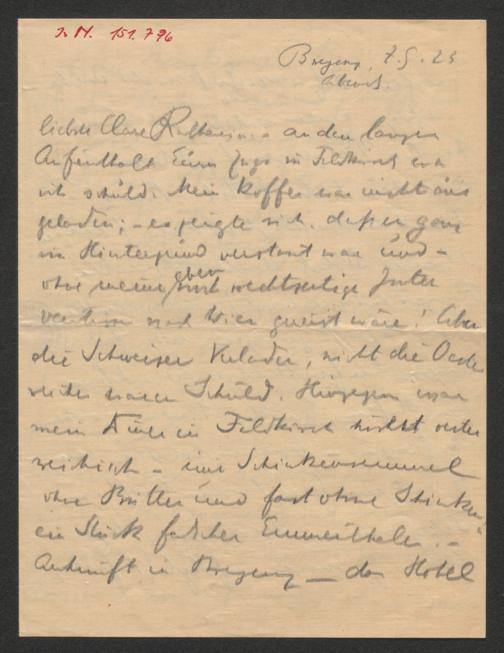 J. N. 151.796
Bregenz, 7.5.23
abends.
liebste Clare an den langen
Aufenthalt Eures Zugs in Feldkirch war
ich schuld. Mein Koffer war nicht aus
geladen; – es zeigte sich, dass er ganz
im Hintergrund verstaut war und –
ohne meine eben rechtzeitige Inter
vention nach Wien gereist wäre! Aber
die Schweizer Verlader, nicht die Oester
reicher waren Schuld. Hingegen war
mein in Feldkirch öster
reichisch – eine Schinkensemmel
ohne Butter und fast ohne Schinken
ein Stück falscher Emmenthaler. –
Ankunft in Bregenz – das Hotel